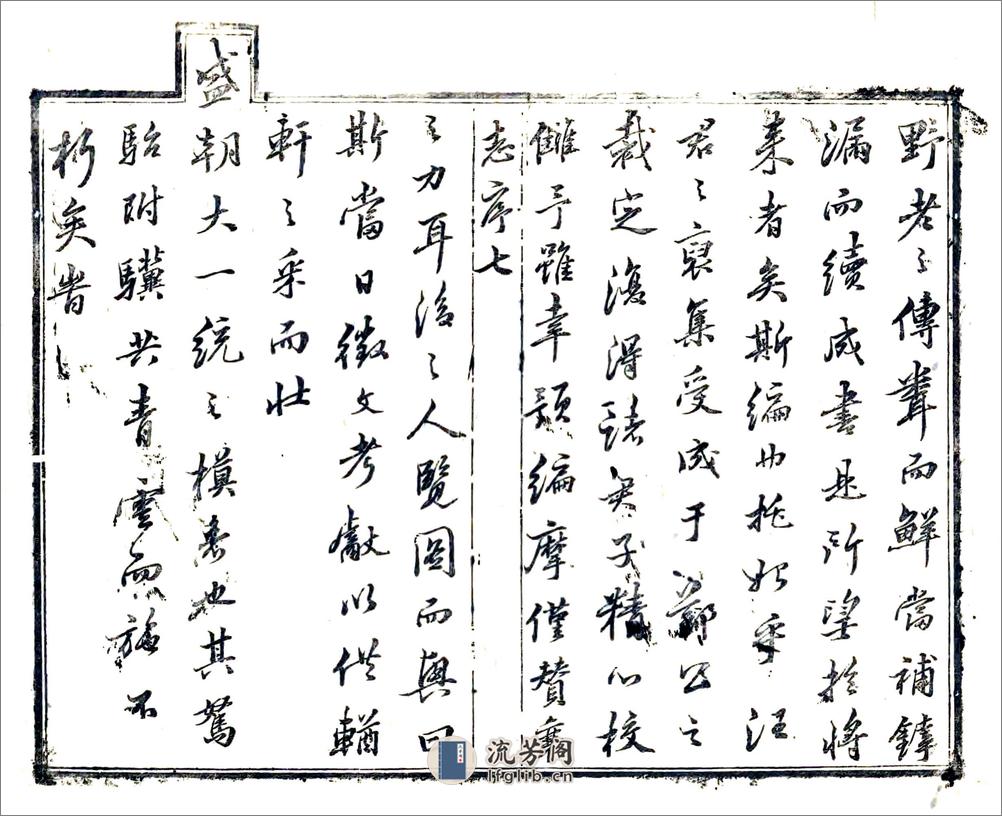 野老之傳聞而鮮當補鏬
漏而續成書是所望於將
來者矣斯編也托始乎汪
君之裒集受成于鄭公之
裁定復得諸君子精心校
讎予雖幸類編摩僅贊襄
志序七
之力耳後之人覽圖而興曰
斯當日徵文考獻以供輶
軒之采而壯
盛
朝大一統之模者也其駑
駘附驥共青雲而施不
朽矣當
流芳閣
lfglib.cn